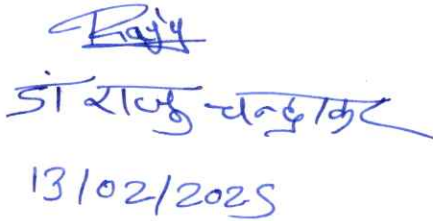 Rajy
डॉ राजु चन्द्राकर
13/02/2025